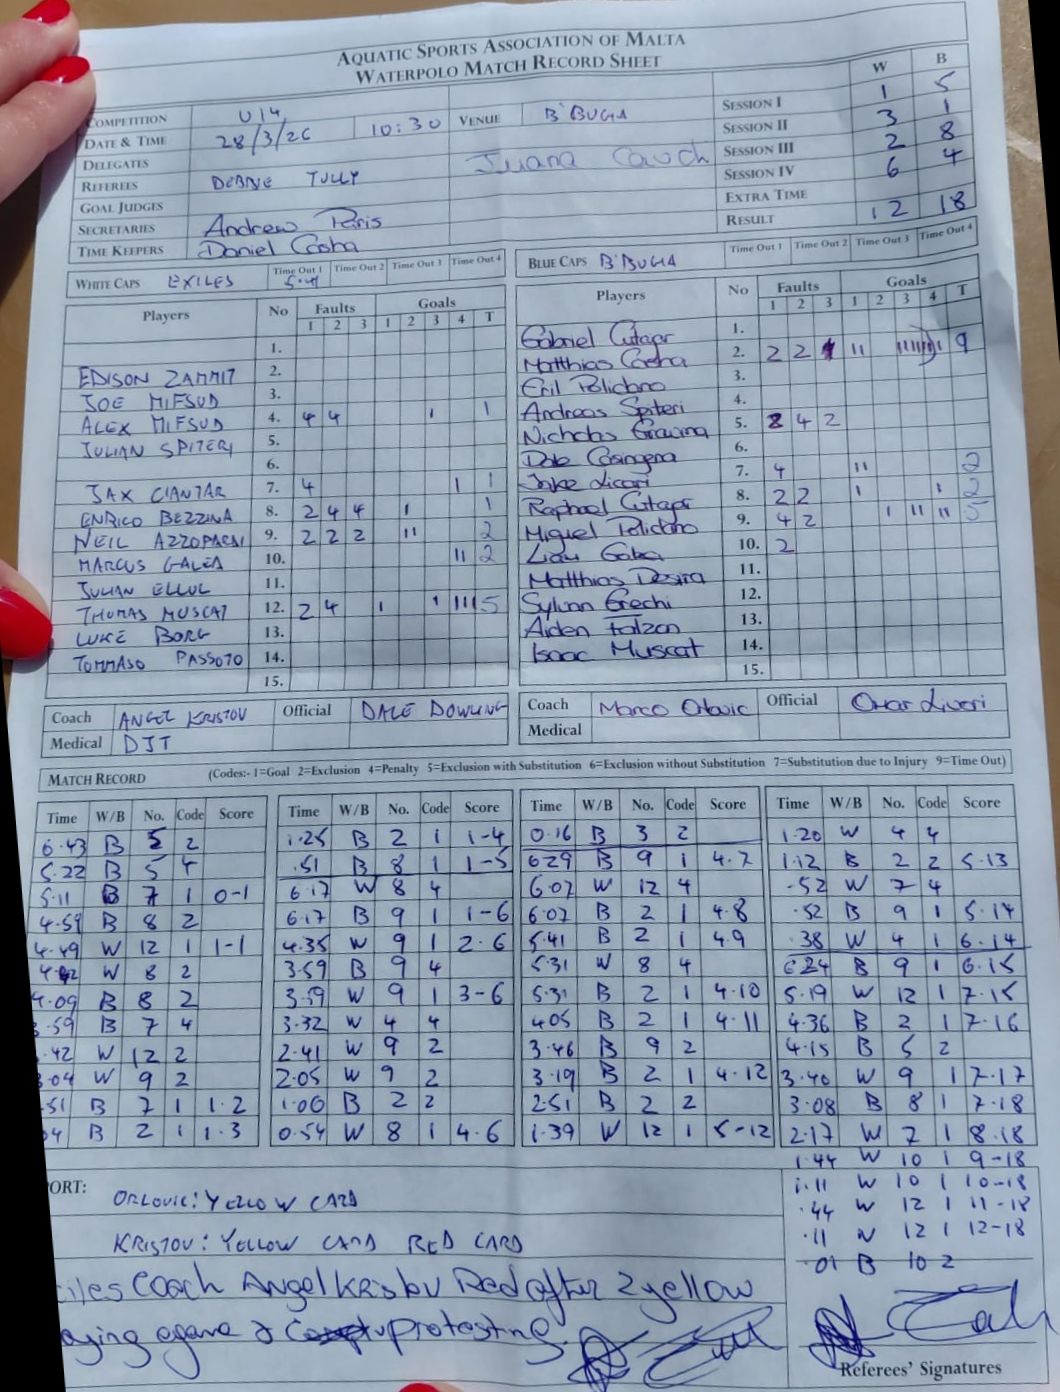 AQUATIC SPORTS ASSOCIATION OF MALTA
WATERPOLO MATCH RECORD SHEET
W B
COMPETITION U14 VENUE B'BUGIA SESSION I 1 5
DATE & TIME 28/3/26 10:30 SESSION II 3 1
DELEGATES SESSION III 2 8
REFEREES DEBBIE TULLY SESSION IV 6 4
GOAL JUDGES EXTRA TIME
SECRETARIES Andrew Paris RESULT 12 18
TIME KEEPERS Daniel Casha
WHITE CAPS EXILES Time Out 1 Time Out 2 Time Out 3 Time Out 4
BLUE CAPS B'BUGIA Time Out 1 Time Out 2 Time Out 3 Time Out 4
Players No Faults Goals
1 2 3 1 2 3 4 T
1.
EDISON ZAMMIT 2.
JOE MIFSUD 3.
ALEX MIFSUD 4. 4 4 1 1
JULIAN SPITERI 5.
6.
JAX CIANTAR 7. 4 1 1
ENRICO BEZZINA 8. 2 4 4 1 1
NEIL AZZOPARDI 9. 2 2 2 11 2
MARCUS GALEA 10. 11 2
JULIAN ELLUL 11.
THOMAS MUSCAT 12. 2 4 1 1 111 5
LUKE BORG 13.
TOMMASO PASSOTO 14.
15.
Players No Faults Goals
1 2 3 1 2 3 4 T
Gabriel Cutajar 1.
Matthias Casha 2. 2 2 11 9
3.
Andreas Spiteri 4.
Nicholas Gravina 5. 2 4 2
6.
Jake Licari 7. 4 11 2
Raphael Cutajar 8. 2 2 1 1 2
Miguel Policiano 9. 4 2 1 11 11 5
10. 2
Matthias Desira 11.
Sylvan Grechi 12.
Aiden Falzon 13.
Isaac Muscat 14.
15.
Coach ANGEL KRISTOV Official DALE DOWLING
Medical DJT
Coach Marco Orlovic Official Omar Liveri
Medical
MATCH RECORD (Codes:- 1=Goal 2=Exclusion 4=Penalty 5=Exclusion with Substitution 6=Exclusion without Substitution 7=Substitution due to Injury 9=Time Out)
Time W/B No. Code Score
6.43 B 5 2
5.22 B 5 4
5.11 B 7 1 0-1
4.59 B 8 2
4.49 W 12 1 1-1
W 8 2
4.09 B 8 2
.59 B 7 4
.42 W 12 2
3.04 W 9 2
.51 B 7 1 1.2
B 2 1 1.3
Time W/B No. Code Score
1.25 B 2 1 1-4
.51 B 8 1 1-5
6.17 W 8 4
6.17 B 9 1 1-6
4.35 W 9 1 2.6
3.59 B 9 4
3.59 W 9 1 3-6
3.32 W 4 4
2.41 W 9 2
2.05 W 9 2
1.00 B 2 2
0.54 W 8 1 4.6
Time W/B No. Code Score
0.16 B 3 2
6.29 B 9 1 4.7
6.07 W 12 4
6.07 B 2 1 4.8
5.41 B 2 1 4.9
5.31 W 8 4
5.31 B 2 1 4.10
4.05 B 2 1 4.11
3.46 B 9 2
3.19 B 2 1 4.12
2.51 B 2 2
1.39 W 12 1 5-12
Time W/B No. Code Score
1.20 W 4 4
1.12 B 2 2 5.13
.52 W 7 4
.52 B 9 1 5.14
.38 W 4 1 6.14
6.24 B 9 1 6.15
5.19 W 12 1 7.15
4.36 B 2 1 7.16
4.15 B 5 2
3.40 W 9 1 7.17
3.08 B 8 1 7.18
2.17 W 7 1 8.18
1.44 W 10 1 9-18
1.11 W 10 1 10-18
.44 W 12 1 11-18
.11 W 12 1 12-18
.01 B 10 2
ORT:
ORLOVIC: YELLOW CARD
KRISTOV: YELLOW CARD RED CARD
iles Coach Angel Kristov Red after 2 yellow
protesting
Referees' Signatures